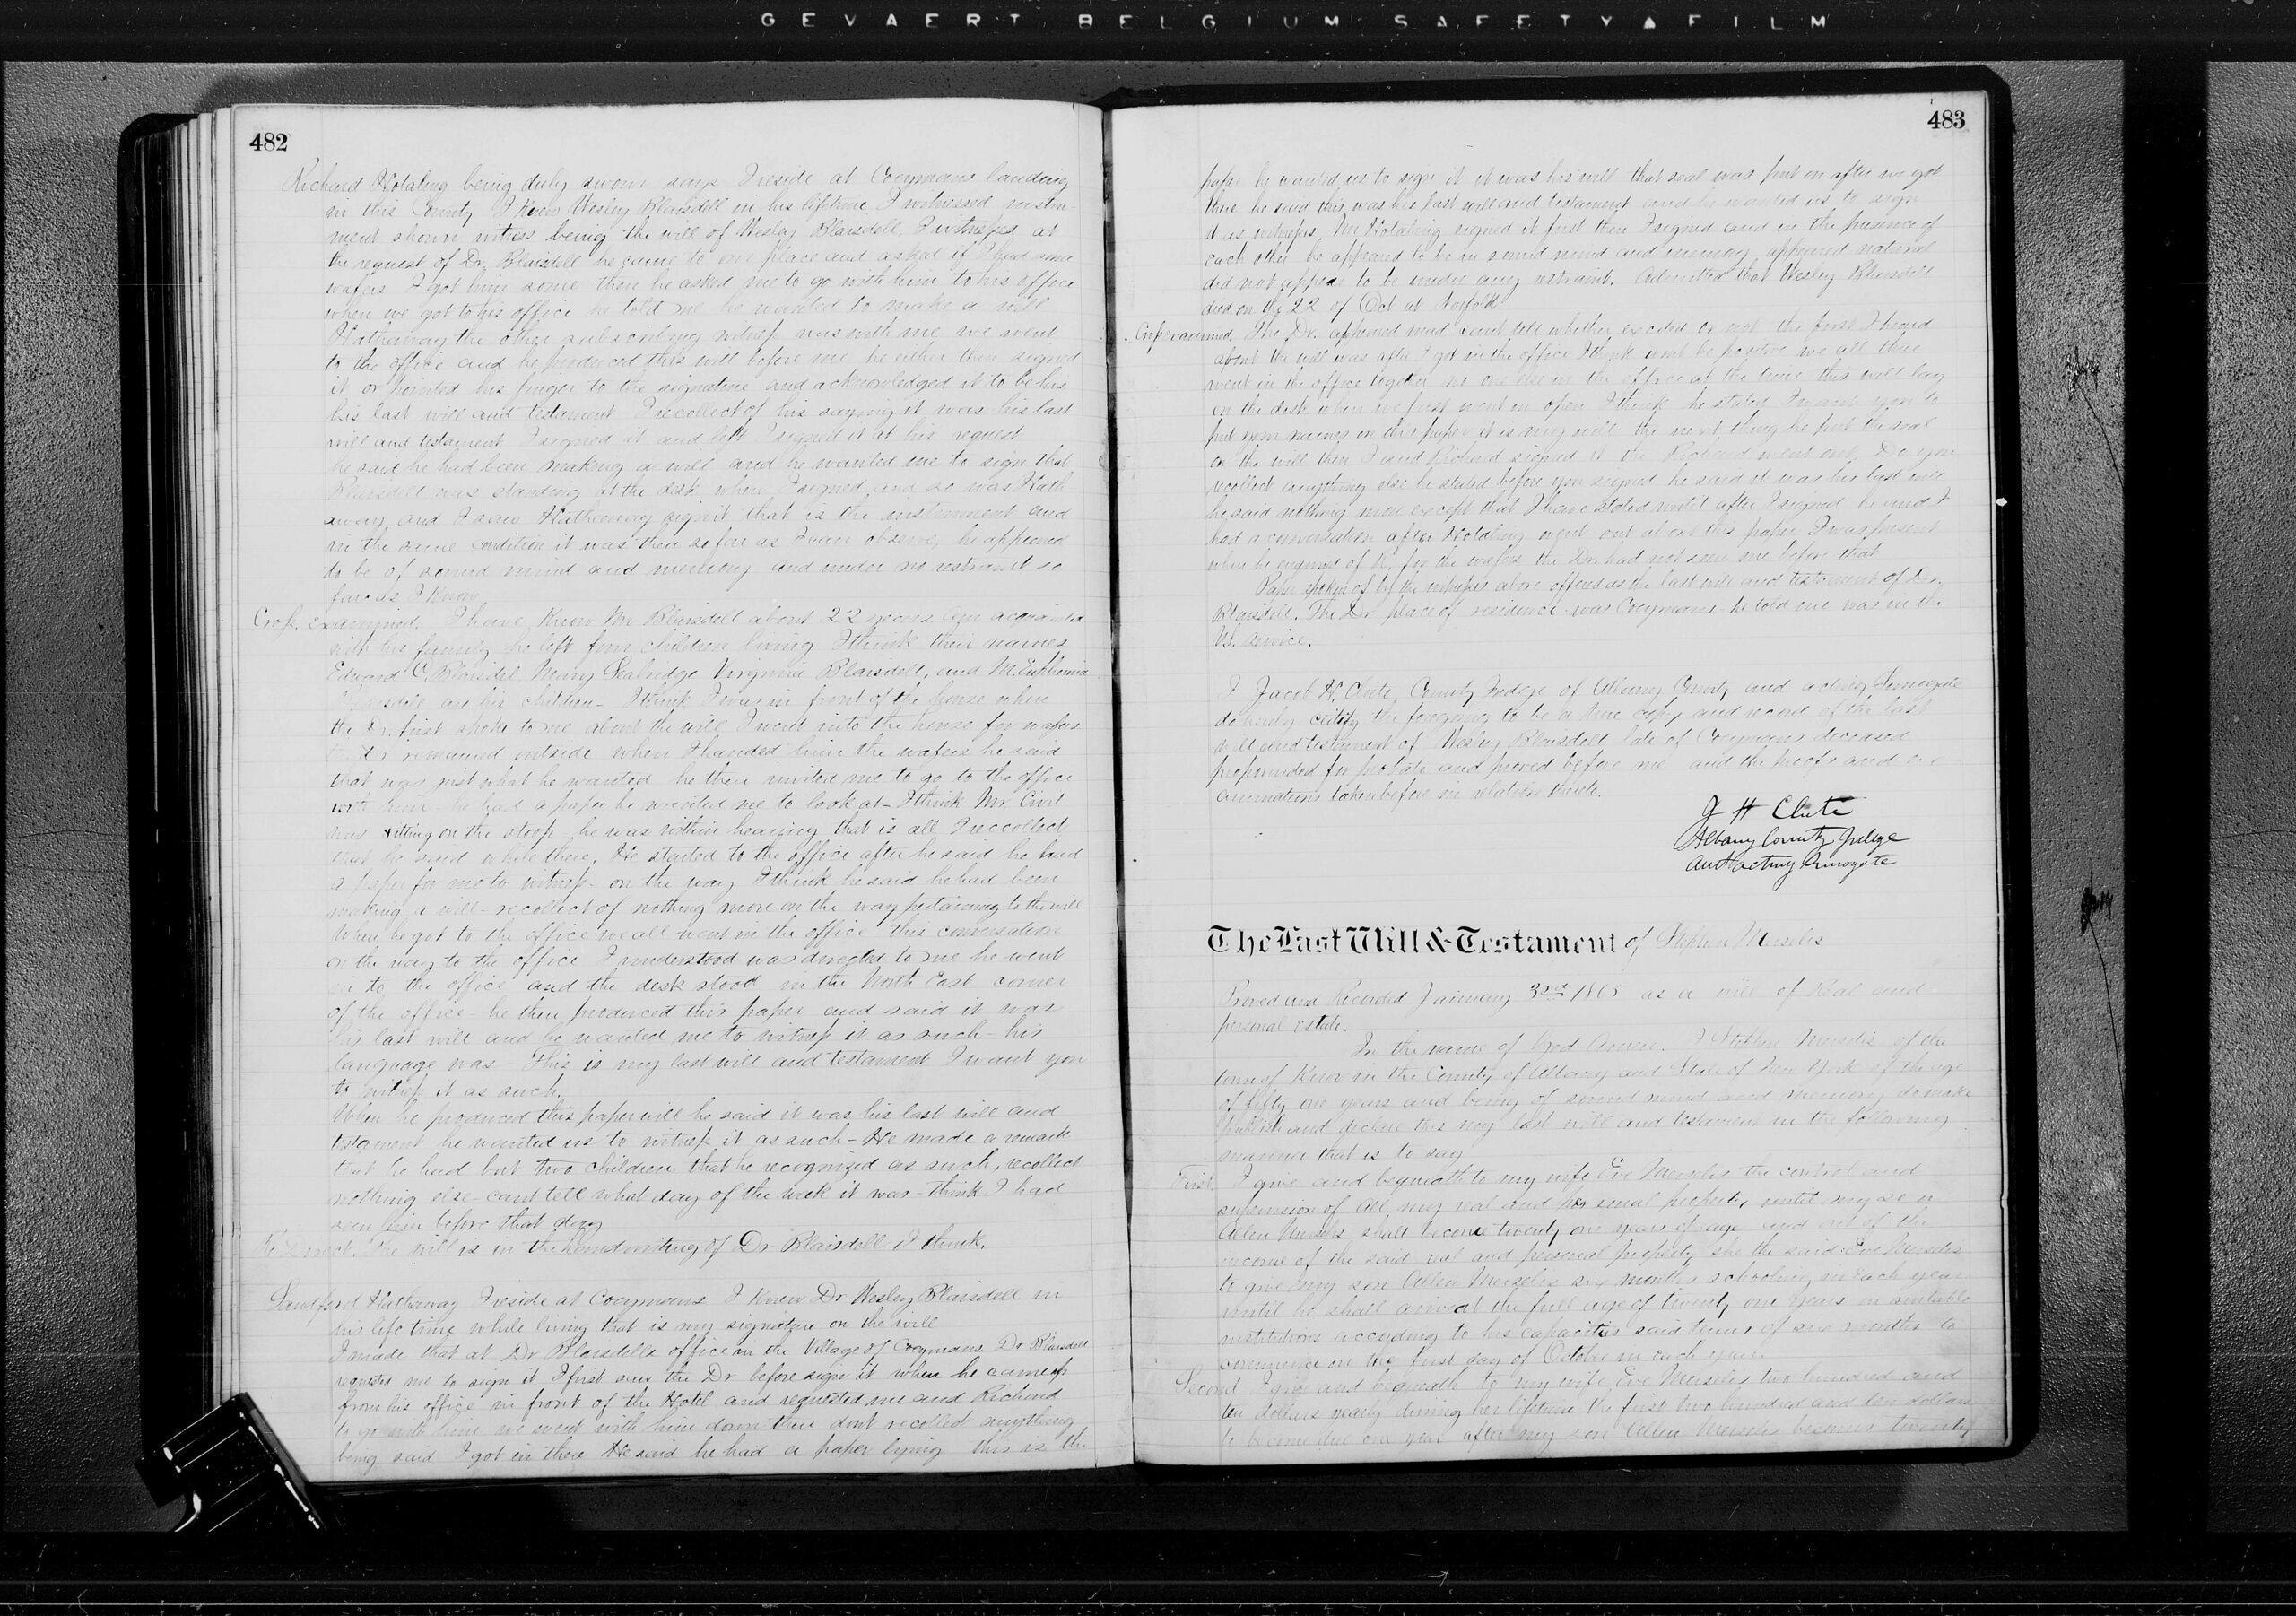 GEVAERT BELGIUM SAFETY▲FILM
482
Richard Hotaling being duly sworn says I reside at Coeymans landing
in this County I knew Wesley Blaisdell in his lifetime I witnessed instru-
ment shown witness being the will of Wesley Blaisdell, I witness at
the request of Dr. Blaisdell he came to our place and asked if I had some
wafers I got him some then he asked me to go with him to his office
when we got to his office he told me he wanted to make a will
Hathaway the other subscribing witness was with me we went
to the office and he produced this will before me he either then signed
it or pointed his finger to the signature and acknowledged it to be his
his last will and testament I recollect of his saying it was his last
will and testament I signed it and left I signed it at his request
he said he had been making a will and he wanted me to sign that
Blaisdell was standing at the desk when I signed and so was Hath
away, and I saw Hathaway sign it that is the instrument and
in the same condition it was then so far as I can observe, he appeared
to be of sound mind and memory and under no restraint so
far as I know
Cross. examined. I have known Mr Blaisdell about 22 years am acquainted
with his family he left four children living I think their names
Edward C. Blaisdel, Mary Virginia Blaisdell, and M. Euphemia
Blaisdell are his children - I think I was in front of the house when
the Dr. first spoke to me about the will I went into the house for wafers
Dr remained outside when I handed him the wafers he said
that was just what he wanted he then invited me to go to the office
with him he had a paper he wanted me to look at - I think Mr. Civil
was sitting on the stoop he was within hearing that is all I reccollect
that he said while there, He started to the office after he said he had
a paper for me to witness - on the way I think he said he had been
making a will - recollect of nothing more on the way pertaining to the will
When he got to the office we all went in the office - this conversation
on the way to the office I understood was directed to me he went
in to the office and the desk stood in the North East corner
of the office - he then produced this paper and said it was
his last will and he wanted me to witness it as such - his
language was This is my last will and testament I want you
to witness it as such.
When he produced this paper will he said it was his last will and
testament he wanted us to witness it as such - He made a remark
that he had but two children that he recognized as such, recollect
nothing else - cant tell what day of the week it was - think I had
seen him before that day
Re Direct. The will is in the handwriting of Dr Blaisdell I think.
Sandford Hathaway I reside at Coeymans I knew Dr Wesley Blaisdell in
his life time while living that is my signature on the will
I made that at Dr Blaisdells office in the Village of Coeymans Dr Blaisdell
requested me to sign it I first saw the Dr before sign it when he came up
from his office in front of the Hotel and requested me and Richard
to go with him we went with him down there dont recollect anything
being said I got in there He said he had a paper lying this is the
483
paper he wanted us to sign it it was his will that seal was put on after we got
there he said this was his last will and testament and he wanted us to sign
it as witness, Mr Hotaling signed it first then I signed and in the presence of
each other he appeared to be in sound mind and memory appeared natural
did not appear to be under any restraint. Admitted that Wesley Blaisdell
died on the 22 of Oct at Norfolk
Cross examined. The Dr. appeared mad cant tell whether excited or not the first I heard
about the will was after I got in the office I think wont be positive we all three
went in the office together no one else in the office at the time this will lay
on the desk when we first went in open I think he stated I want you to
put your names on this paper it is my will the next thing he put the seal
on the will then I and Richard signed it Richard went out, Do you
recollect anything else he stated before you signed he said it was his last will
he said nothing more except that I have stated until after I signed he and I
had a conversation after Hotaling went out about this paper, I was present
when he enquired of R. for the wafers the Dr. had not seen me before that
Paper spoken of by the witnesses above offered as the last will and testament of Dr.
Blaisdell. The Dr place of residence was Coeymans he told me was in the
US. service.
I Jacob H. Clute, County Judge of Albany County and acting Surrogate
do hereby certify the foregoing to be a true copy and record of the last
will and testament of Wesley Blaisdell late of Coeymans deceased
propounded for probate and proved before me and the proofs and ex-
aminations taken before in relation thereto.
J H Clute
Albany County Judge
and acting Surrogate
The Last Will & Testament of Stephen Merselis
Proved and Recorded January 3rd 1865 as a will of Real and
personal estate.
In the name of God Amen. I Stephen Merselis of the
town of Knox in the County of Albany and State of New York of the age
of fifty one years and being of sound mind and memory do make
publish and declare this my last will and testament in the following
manner that is to say
First I give and bequeath to my wife Eve Merselis the control and
supervision of all my real and personal property until my son
Allen Merselis shall become twenty one years of age and out of the
income of the said real and personal property she the said Eve Merselis
to give my son Allen Merselis six months schooling in each year
until he shall arrive at the full age of twenty one years in suitable
institutions according to his capacities said terms of six months to
commence on the first day of October in each year.
Second I give and bequeath to my wife Eve Merselis two hundred and
ten dollars yearly during her lifetime the first two hundred and ten dollars
to become due one year after my son Allen Merselis becomes twenty